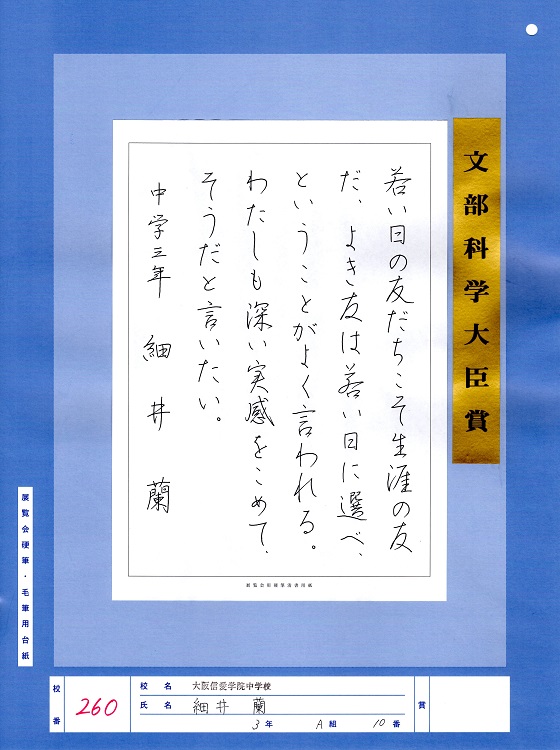 文部科学大臣賞
若い日の友だちこそ生涯の友
だ、よき友は若い日に選べ、
ということがよく言われる。
わたしも深い実感をこめて、
そうだと言いたい。
中学三年 細井 蘭
展覧会用硬筆清書用紙
展覧会硬筆・毛筆用台紙
校番 260
校名 大阪信愛学院中学校
氏名 細井 蘭
3年 A組 10番
賞